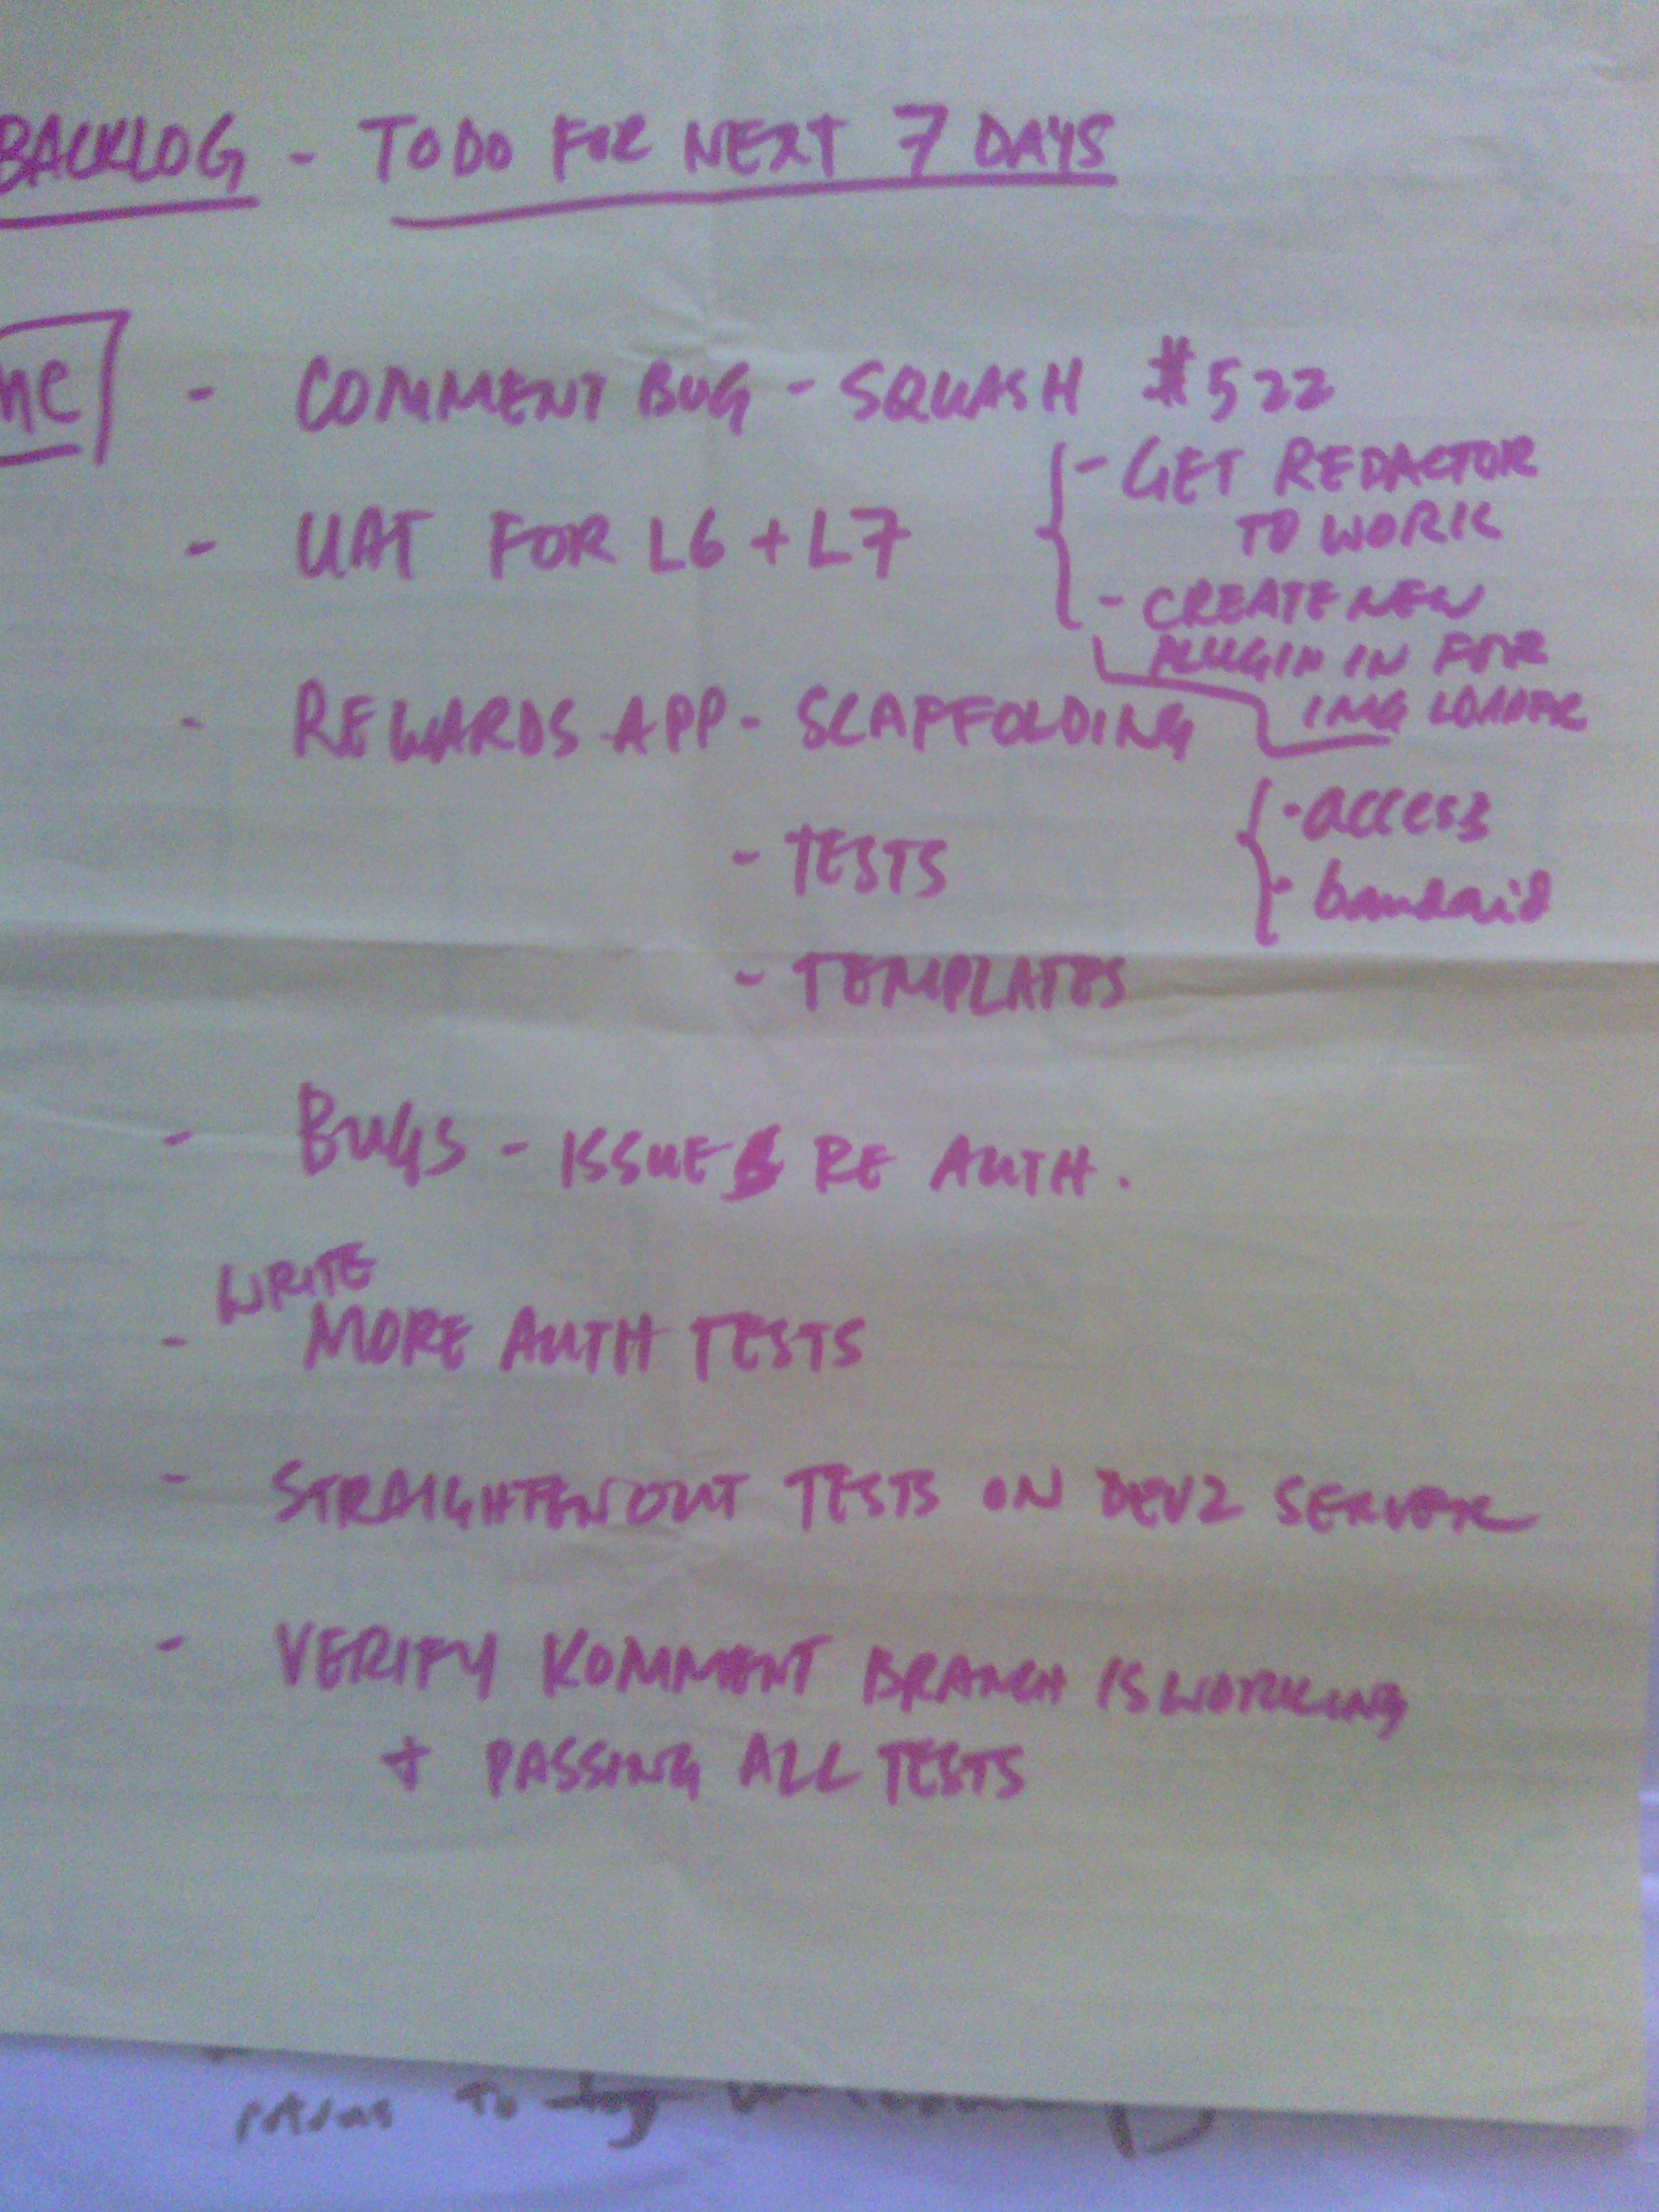 BACKLOG - TODO FOR NEXT 7 DAYS
- COMMENT BUG - SQUASH #522
- GET REDACTOR
TO WORK
- UAT FOR L6 + L7
- CREATE NEW
PLUGIN IN FOR
IMG LOADER
- REWARDS APP - SCAFFOLDING
- access
- TESTS
- bandaid
- TEMPLATES
- BUGS - ISSUES RE AUTH.
WRITE
- MORE AUTH TESTS
- STRAIGHTEN OUT TESTS ON DEV2 SERVER
- VERIFY KOMMENT BRANCH IS WORKING
+ PASSING ALL TESTS
to